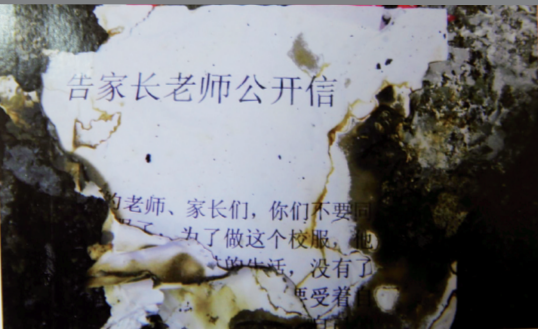 告家长老师公开信
的老师、家长们，你们不要同
为了做这个校服，他
的生活，没有了
要受着自